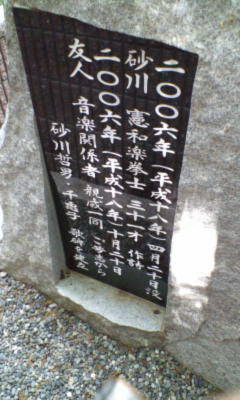 二〇〇六年(平成十八年)四月二十日没
砂川 憲和楽拳士 三十一才 作詩
二〇〇六年(平成十八年)十月二十日
友人 音楽関係者 親族一同 ご芳志から
砂川哲男・千恵子 歌碑を建立